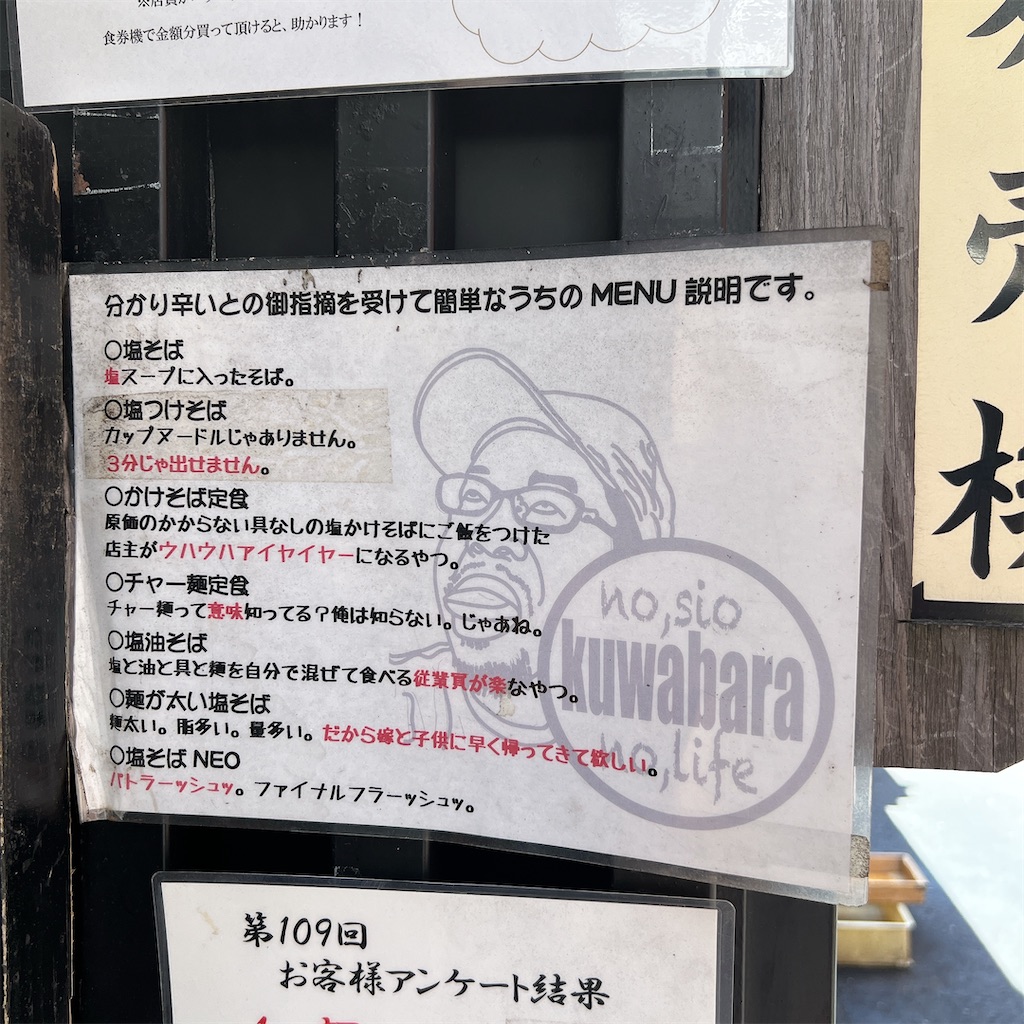 食券機で金額分買って頂けると、助かります!
分かり辛いとの御指摘を受けて簡単なうちの MENU 説明です。
○塩そば
塩スープに入ったそば。
○塩つけそば
カップヌードルじゃありません。
3分じゃ出せません。
○かけそば定食
原価のかからない具なしの塩かけそばにご飯をつけた
店主がウハウハアイヤイヤーになるやつ。
○チャー麺定食
チャー麺って意味知ってる?俺は知らない。じゃあね。
○塩油そば
塩と油と具と麺を自分で混ぜて食べる従業員が楽なやつ。
○麺が太い塩そば
麺太い。脂多い。量多い。だから嫁と子供に早く帰ってきて欲しい。
○塩そば NEO
パトラーッシュッ。ファイナルフラーッシュッ。
no,sio
kuwabara
no,life
売
第109回
お客様アンケート結果